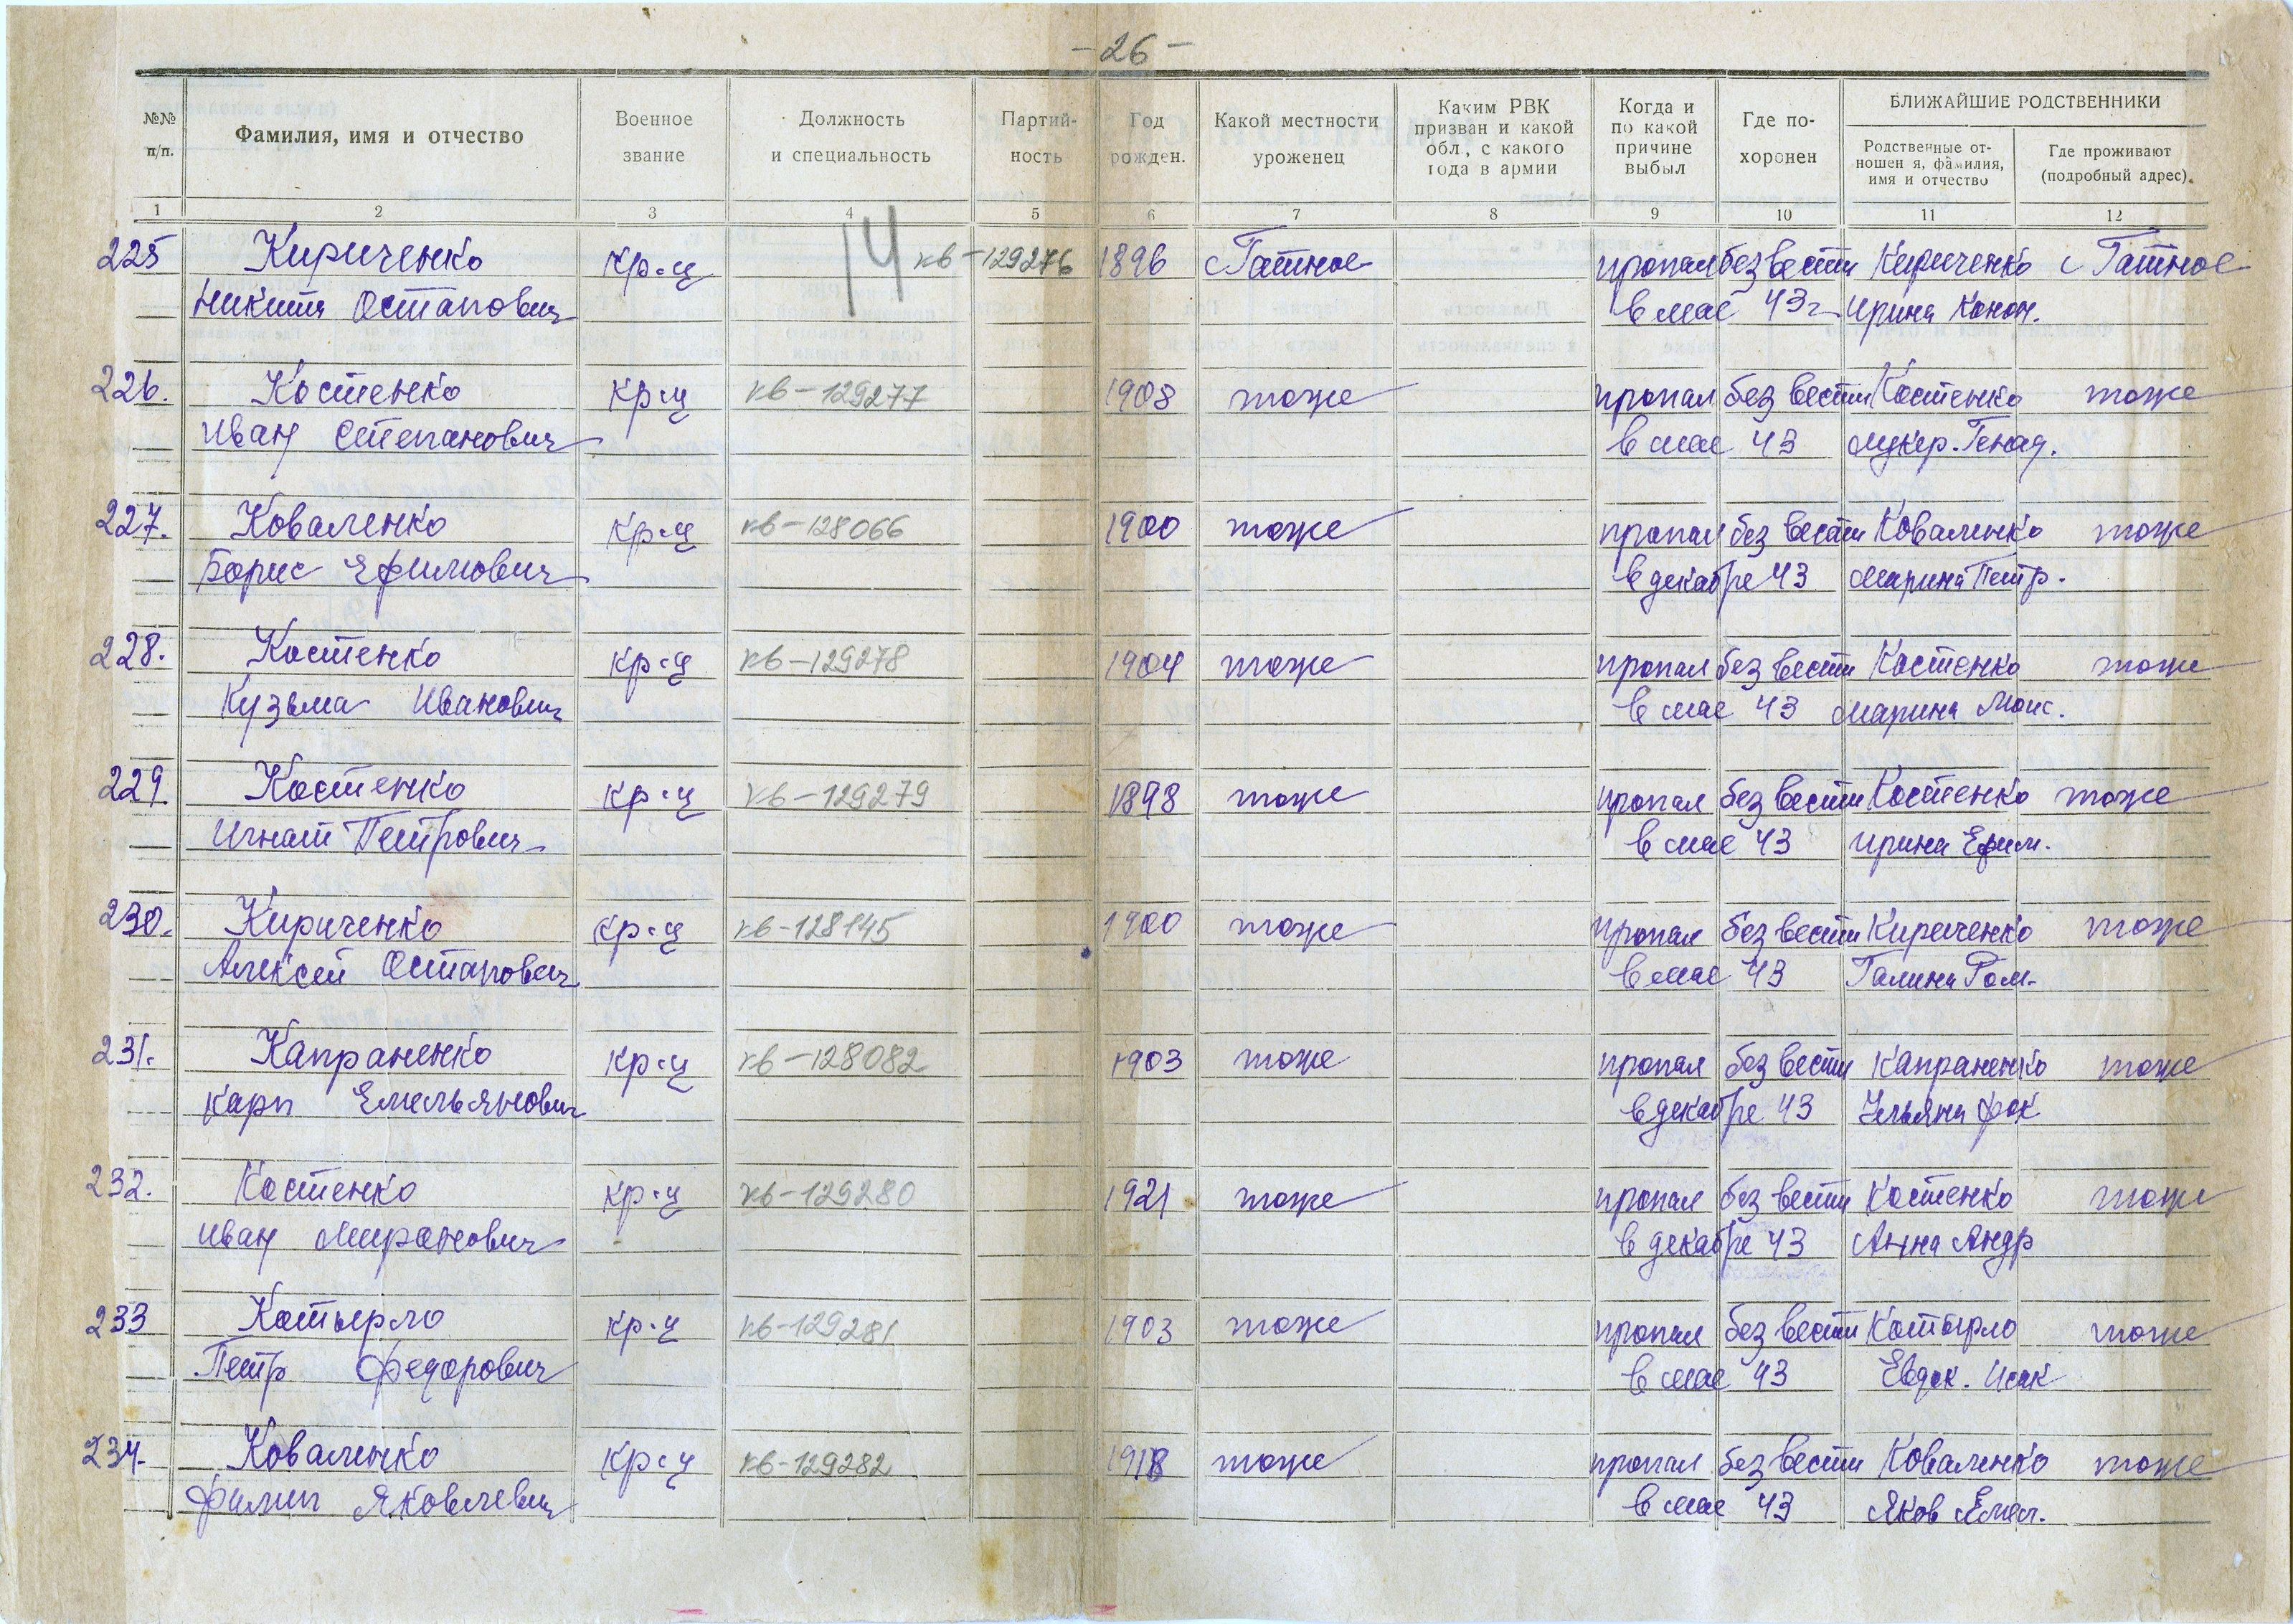 -26-
№№ п/п.
Фамилия, имя и отчество
Военное звание
Должность и специальность
Партий-ность
Год рожден.
Какой местности уроженец
Каким РВК призван и какой обл, с какого года в армии
Когда и по какой причине выбыл
Где по-хоронен
БЛИЖАЙШИЕ РОДСТВЕННИКИ
Родственные от-ношен я, фамилия, имя и отчество
Где проживают (подробный адрес).
1 2 3 4 5 6 7 8 9 10 11 12
14
225 Кириченко кр-ц кв-129276 1896 с Гатное пропал без вести Кириченко с Гатное
Никита Остапович в мае 43г Ирина Конон.
226. Костенко кр-ц кв-129277 1908 тоже пропал без вести Костенко тоже
Иван Степанович в мае 43 Генад.
227. Коваленко кр-ц кв-128066 1900 тоже пропал без вести Коваленко тоже
Борис Ефимович в декабре 43 Марина Петр.
228. Костенко кр-ц кв-129278 1904 тоже пропал без вести Костенко тоже
Кузьма Иванович в мае 43 Марина Моис.
229. Костенко кр-ц кв-129279 1898 тоже пропал без вести Костенко тоже
Игнат Петрович в мае 43 Ирина Ефим.
230. Кириченко кр-ц кв-128145 1900 тоже пропал без вести Кириченко тоже
Алексей Остапович в мае 43 Галина Ром.
231. Капраненко кр-ц кв-128082 1903 тоже пропал без вести Капраненко тоже
Карп Емельянович в декабре 43 Ульяна Фок
232. Костенко кр-ц кв-129280 1921 тоже пропал без вести Костенко тоже
Иван Миронович в декабре 43 Анна Андр
233 Котырло кр-ц кв-129281 1903 тоже пропал без вести Котырло тоже
Петр Федорович в мае 43 Евдок. Исак
234. Коваленко кр-ц кв-129282 1918 тоже пропал без вести Коваленко тоже
Филип Яковлевич в мае 43 Яков Емел.